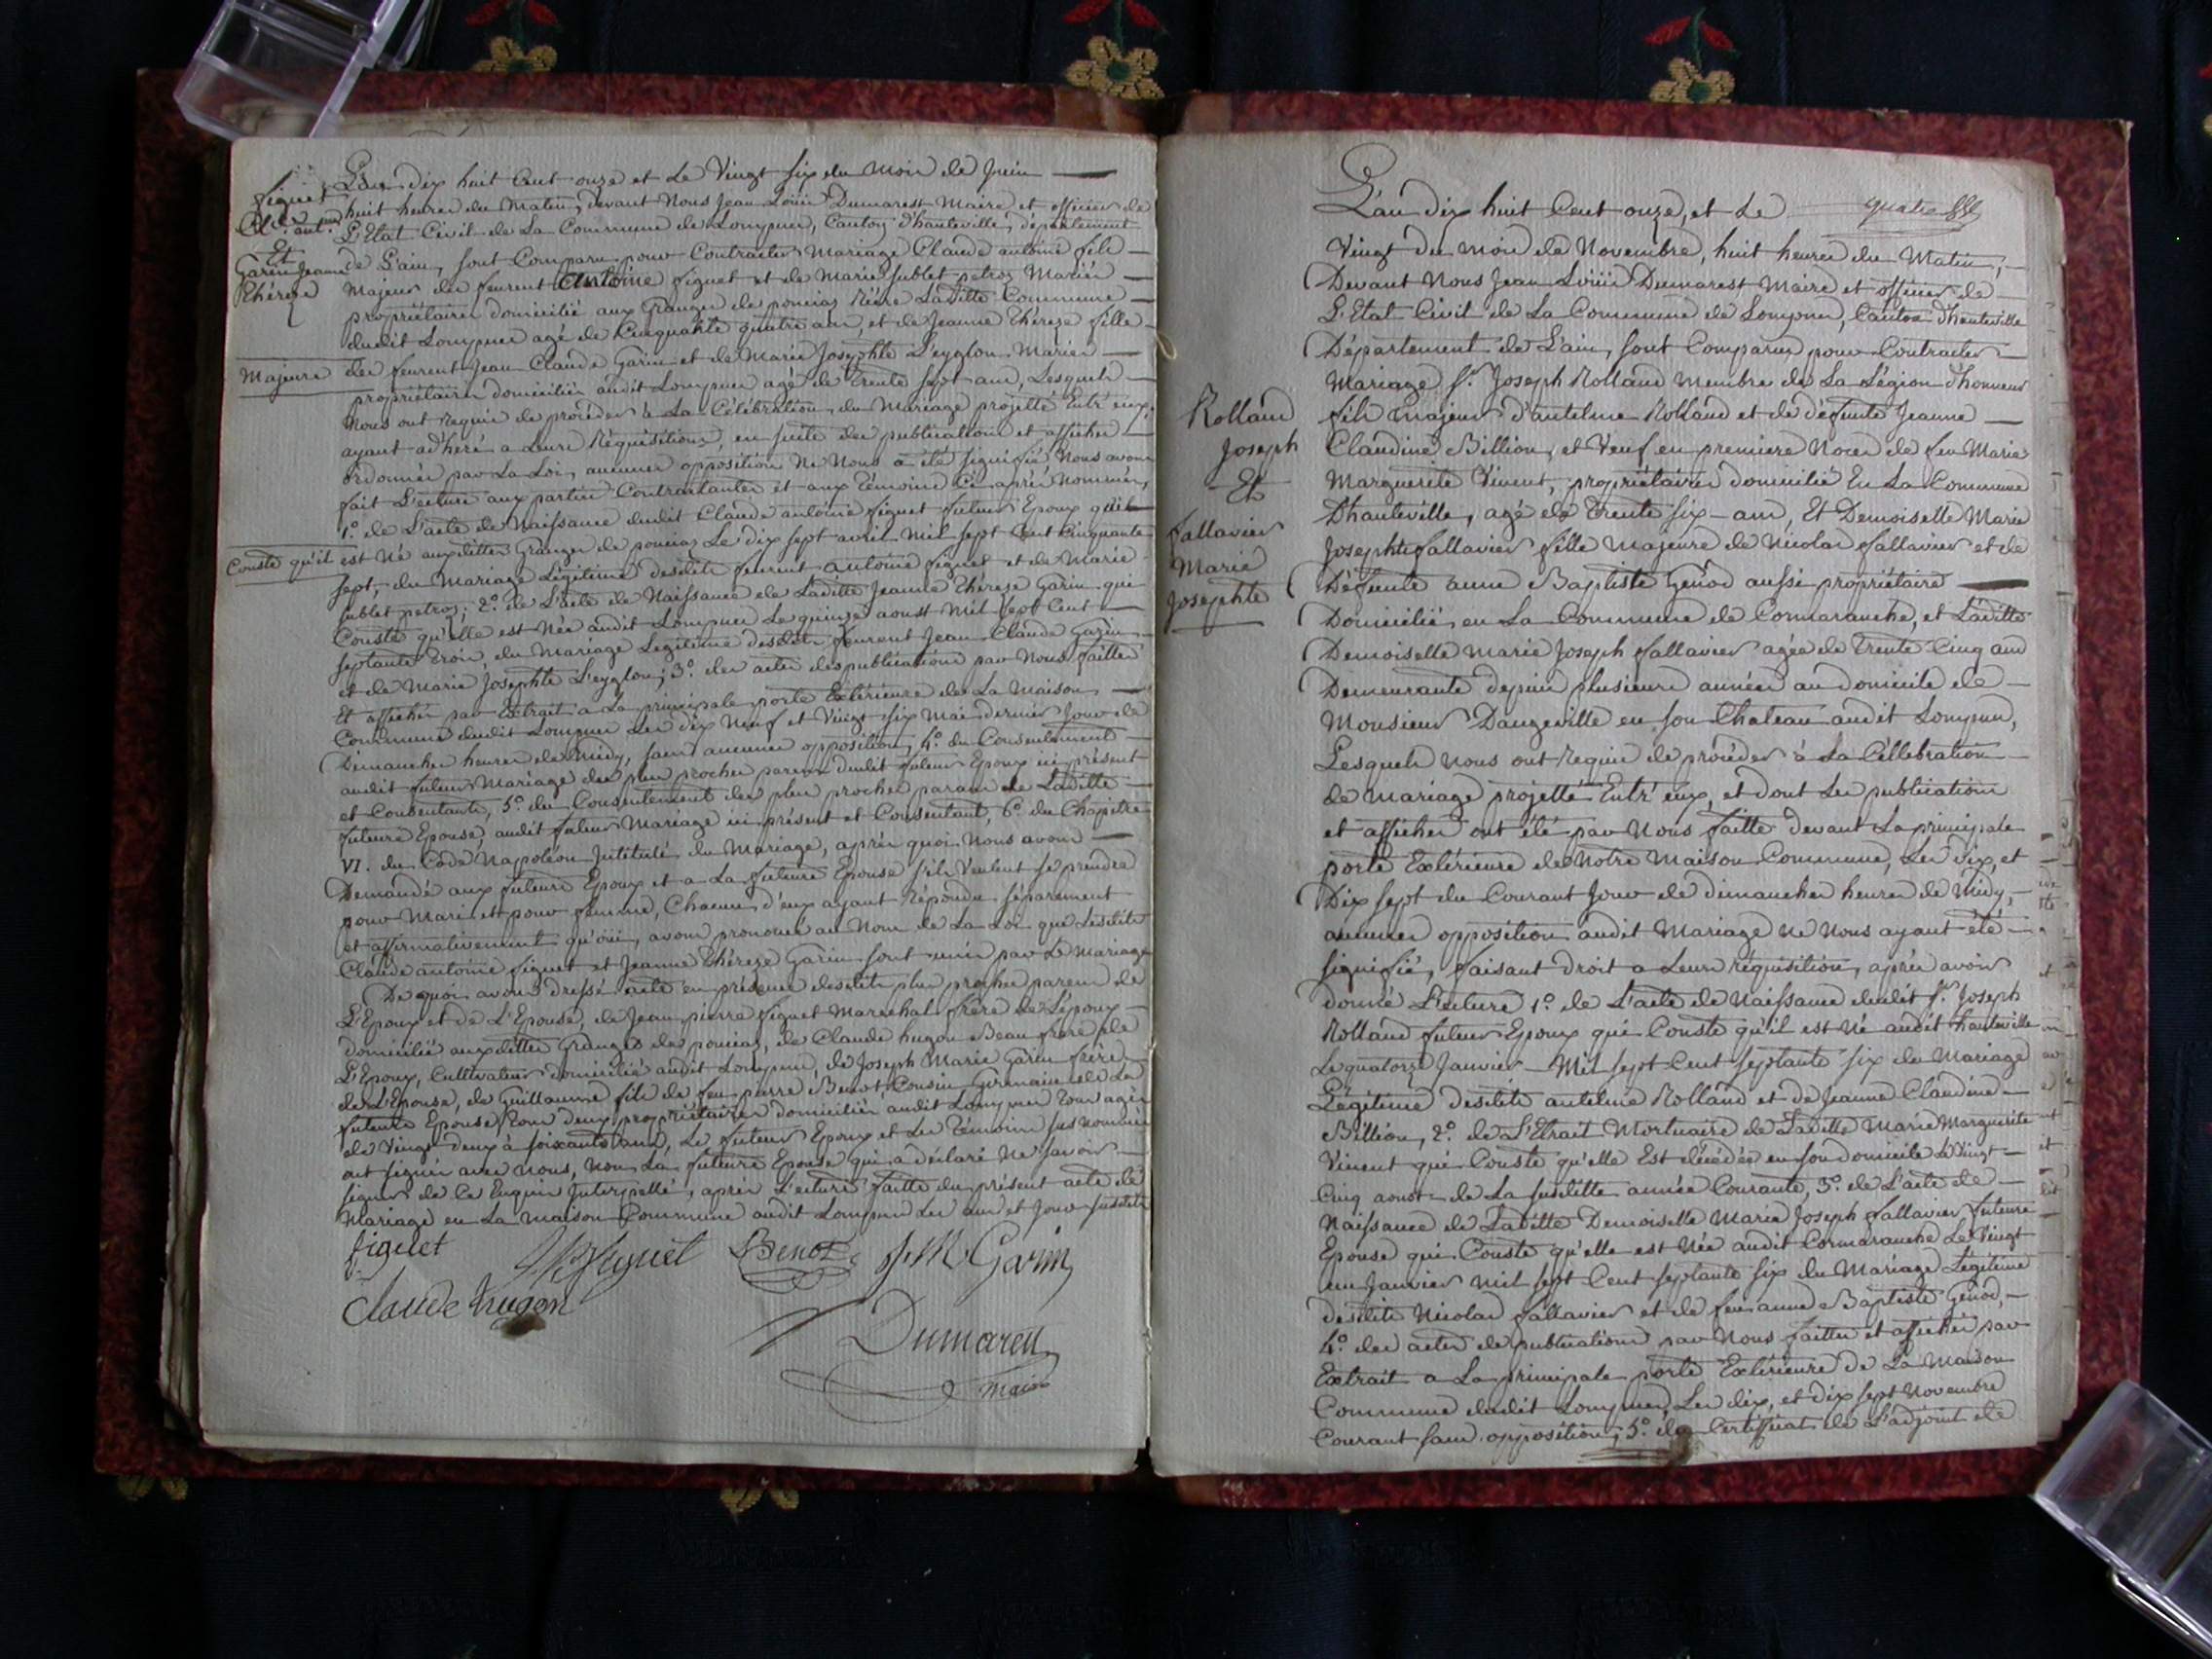 figuet
Cl.de ant.ne
Et
Garin Jeanne
Thérèze
L'an dix huit Cent onze et Le Vingt six du mois de Juin
huit heures du Matin, devant Nous Jean Loüis Dumarest Maire et officier de
L'Etat Civil de La Commune de Lompnes, Canton d'hauteville, département
de L'ain, sont Comparu pour Contracter Mariage Claude antoine fils
Majeur des feurent Antoine figuet et de Marie Sublet petros Mariés
propriétaires domicilié aux Granges de ponciaz Rière Laditte Commune
dudit Lompnes agé de Cinquante quatre ans, et de Jeanne Thérèze fille
Majeure
des feurent Jean Claude Garin et de Marie Josephte L'eyglon Mariés
propriétaires domiciliés audit Lompnes agé de Trente sept ans, Lesquels
Nous ont Requis de procéder à La Célébration du Mariage projetté Entr'eux,
ayant adhéré a Leurs Réquisitions, en suite des publications et affiches
ordonnés par La Loi, aucunes opposition Ne Nous a été signifié, Nous avons
fait L'ecture aux parties Contractantes et aux Témoins Ci-après Nommés,
1.º de L'acte de Naissance dudit Claude antoine figuet futeur Epoux qu'il
Conste qu'il
est Né auxdittes Granges de ponciaz Le dix sept avril Mil sept Cent Cinquante
sept, du Mariage Légitime desdits feurent antoine figuet et de Marie
Sublet petroz; 2.º de L'acte de Naissance de Laditte Jeanne Thérèze Garin qui
Conste qu'elle est Née audit Lompnes Le quinze aoust Mil sept Cent
septante Trois, du Mariage Légitime desdits feurent Jean Claude Garin
et de Marie Josephte L'eyglon; 3.º des actes des publications par Nous faittes
Et affichés par Extrait a La principale porte Extérieure de La Maison
Commune dudit Lompnes Les dix Neuf et Vingt six Mai dernier Jour de
Dimanches heures de Midy, sans aucunes opposition, 4.º du Consentement
audit futeur Mariage des plus proches parens dudit futeur Epoux ici présent
et Consentants, 5.º du Consentement des plus proches parans de Laditte
futeure Epouse, audit futeur Mariage ici présent et Consentant, 6.º du Chapitre
VI. du Code Napoléon Intitulé du Mariage, après quoi Nous avons
Demandé aux futeurs Epoux et a La futeure Epouse s'ils Veulent se prendre
pour Mari et pour femme, Chacun d'eux ayant Répondu séparement
et affirmativement qu'oüi, avons prononcé au Nom de La Loi que Lesdits
Claude antoine figuet et Jeanne Thérèze Garin sont unis par Le Mariage
De quoi avons dressé acte en présence desdits plus proches parens de
L'Epoux et de L'Epouse, de Jean pierre figuet Maréchal frère de L'époux
domicilié auxdittes Granges de ponciaz, de Claude hugon Beau frère de
L'Epoux, Cultivateur domicilié audit Lompnes, de Joseph Marie Garin frère
de L'Epouse, de Guillaume fils de feu pierre Benot, Cousin Germain de La
futeure Epouse, Tous deux propriétaires domiciliés audit Lompnes Tous agés
de Vingt deux à soixante ans, Le futeur Epoux et Les Témoins sus Nommés
ont signés avec nous, Non La futeure Epouse qui a déclaré Ne savoir
signer de Ce Enquis Interpellé, après L'ecture faitte du présent acte de
Mariage en La Maison Commune audit Lompnes Les an et Jour susdits
figuet
figuet
Benot
J. M. Garin
Claude hugon
Dumarest
Maire
L'an dix huit Cent onze, et Le
Vingt du mois de Novembre, huit heures du Matin,
Devant Nous Jean Loüis Dumarest Maire et officier de
L'Etat Civil de La Commune de Lompnes, Canton d'hauteville
Département de L'ain, sont Comparus pour Contracter
Mariage s.r Joseph Rolland Membre de La Légion d'honneur
Rolland
Joseph
Et
fallavier
Marie
Josephte
fils Majeur d'antelme Rolland et de défunte Jeanne
Claudine Billion, et Veuf en premiere Noces de feu Marie
Marguerite Vincent, propriétaires domicilié En La Commune
D'hauteville, agé de Trente six ans, Et Demoiselle Marie
Josephte fallavier fille Majeure de Nicolas fallavier et de
Défunte anne Baptiste Genod aussi propriétaire
Domicilié en La Commune de Cormaranche, et Laditte
Demoiselle Marie Joseph fallavier agée de Trente Cinq ans
Demeurante depuis plusieurs années au domicile de
Monsieur Dangeville en son Chateau audit Lompnes,
Lesquels Nous ont Requis de procéder à La Céllebration
de Mariage projetté Entr'eux, et dont Les publications
et affiches ont été par Nous faitte devant La principale
porte Extérieure de Notre Maison Commune, Les dix, et
Dix sept du Courant Jour de dimanches heures de Midy,
aucunes opposition audit Mariage ne Nous ayant été
signifié, faisant droit a Leurs réquisition, après avoir
donné L'ecture 1.º de L'acte de Naissance dudit s.r Joseph
Rolland futeur Epoux qui Conste qu'il est Né audit hauteville
Le quatorze Janvier Mil sept Cent septante six du Mariage
Légitime desdits antelme Rolland et de Jeanne Claudine
Billion, 2.º de L'Etrait Mortuaire de Laditte Marie Marguerite
Vincent qui Conste qu'elle Est décédée en son domicile Le Vingt
Cinq aoust de La susditte année Courante, 3.º de L'acte de
Naissance de Laditte Demoiselle Marie Joseph fallavier futeure
Epouse qui Conste qu'elle est Née audit Cormaranche Le Vingt
un Janvier Mil sept Cent septante six du Mariage Légitime
desdits Nicolas fallavier et de feu anne Baptiste Genod,
4.º des actes de publications par Nous faittes et affichés par
Extrait a La principale porte Extérieure de La Maison
Commune dudit Lompnes, Les dix, et dix sept Novembre
Courant sans opposition, 5.º du Certifficat de L'adjoint de